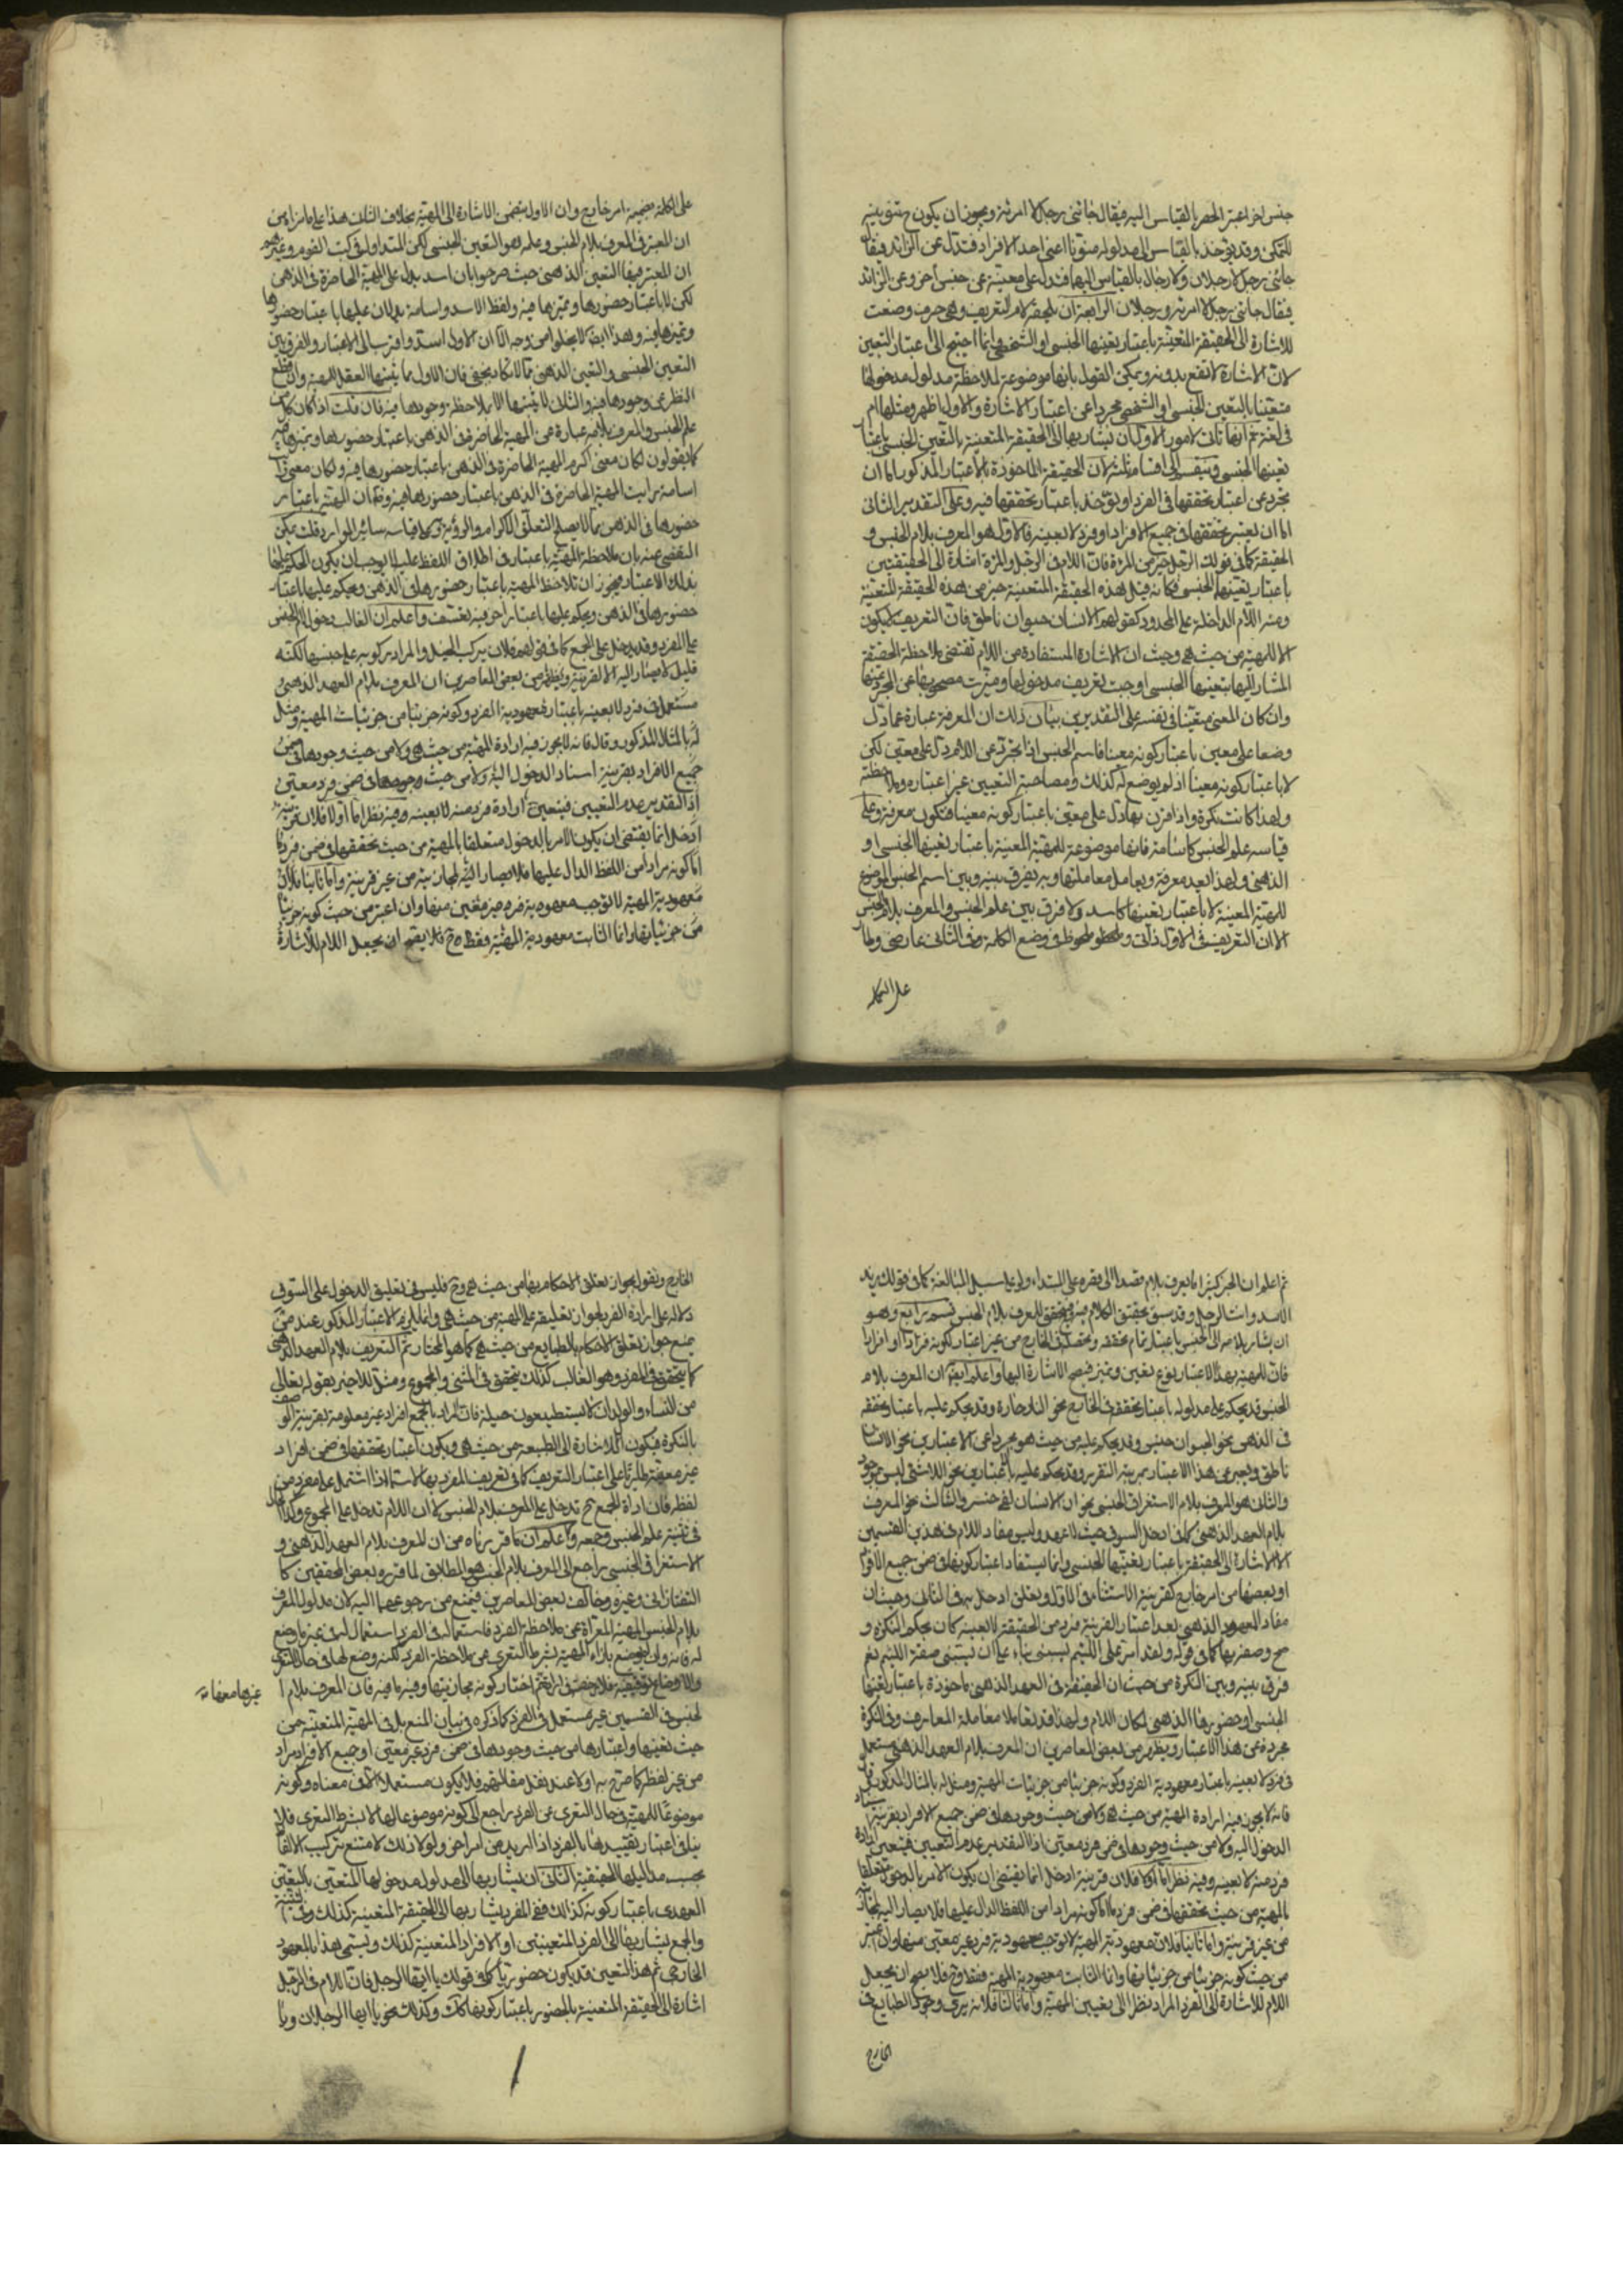 جنس اخر اعتبر الحصر بالقياس اليه فيقال جائني رجل لا امرئة ويجوز ان يكون ح تنوينه
للتمكن وقد يؤخذ بالقياس الى مدلوله منونا اعني احد الافراد فتدل عن الزائد فيقال
جائني رجل لا رجلان ولا رجال بالقياس اليهما فتدل على معينة عن جنس آخر وعن الزائد
فيقال جائني رجل لا امرئة ورجلان الرابعة ان يلحقه لام التعريف وهي حرف وضعت
للاشارة الى الحقيقة المتعينة باعتبار تعينها الجنسي او الشخصي وانما احتيج الى اعتبار التعين
لان الاشارة لا تقع بدونه ويمكن القول بانها موضوعة لملاحظة مدلول مدخولها
متعينا بالتعين الجنسي او الشخصي مجردا عن اعتبار الاشارة والاول اظهر ومثلها ام
في لغة ثم انها تاتي لامور الاول ان يشار بها الى الحقيقة المتعينة بالتعين الجنسي باعتبار
تعينها الجنسي وينقسم الى اقسام ثلثة لان الحقيقة الماخوذة بالاعتبار المذكور اما ان
تجرد عن اعتبار تحققها في الفرد او يؤخذ باعتبار تحققها فيه وعلى التقدير الثاني
اما ان يعتبر تحققها في جميع الافراد او فرد لا بعينه فالاول هو المعرف بلام الجنس و
الحقيقة كما في قولك الرجل خير من المرئة فان اللام في الرجل والمرئة اشارة الى الحقيقتين
باعتبار تعينهما الجنسي فكانه قيل هذه الحقيقة المتعينة خير من هذه الحقيقة المتعينة
ومنه اللام الداخلة على المحدود كقولهم الانسان حيوان ناطق فان التعريف لا يكون
الا للمهية من حيث هي وحيث ان الاشارة المستفادة من اللام تقتضي ملاحظة الحقيقة
المشار اليها بتعينها الجنسي اوجبت تعريف مدخولها وميزت مصحوبها عن المجرد عنها
وان كان المعنى متعينا في نفسه على التقديرين بيان ذلك ان المعرفة عبارة عما دل
وضعا على معين باعتبار كونه معينا فاسم الجنس اذا تجرد عن اللام دل على معين لكن
لا باعتبار كونه معينا اذ لم يوضع له كذلك ومصاحبة التعيين غير اعتباره وملاحظته
ولهذا كانت نكرة واذا قرن بها دل على معين باعتبار كونه معينا فتكون معرفة وعلى
قياسه علم الجنس كاسامة فانها موضوعة للمهية المعينة باعتبار تعينها الجنسي او
الذهني ولهذا يعد معرفة ويعامل معاملتها وبه يفرق بينه وبين اسم الجنس الموضوع
للمهية المعينة لا باعتبار تعينها كاسد ولا فرق بين علم الجنس والمعرف بلام الجنس
الا ان التعريف في الاول ذاتي وملحوظ في وضع الكلمة وفي الثاني عارضي وطار
على الكلمة
على الكلمة بضميمة امر خارج وان الاول يتضمن الاشارة الى المهية بخلاف الثاني هذا على ما نراه من
ان المعتبر في المعرف بلام الجنس وعلمه هو التعين الجنسي لكن المتداول في كتب القوم وغيرهم
ان المعتبر فيها التعين الذهني حيث صرحوا بان اسد يدل على المهية الحاضرة في الذهن
لكن لا باعتبار حضورها وتميزها فيه ولفظ الاسد واسامة يدلان عليها باعتبار حضورها
وتميزها فيه وهذا ايضا لا يخلوا من وجه الا ان الاول اسد واقرب الى الاعتبار والفرق بين
التعين الجنسي والتعين الذهني مما لا يكاد يخفى فان الاول مما يثبتها العقل للمهية وان قطع
النظر عن وجودها فيه والثاني لا يثبتها الا بملاحظة وجودها فيه فان قلت اذا كان كل من
علم الجنس والمعرف بلامه عبارة عن المهية الحاضرة في الذهن باعتبار حضورها وتميزها فيه
كما يقولون لكان معنى اكرم المهية الحاضرة في الذهن باعتبار حضورها فيه ولكان معنى رايت
اسامة رايت المهية الحاضرة في الذهن باعتبار حضورها فيه وظ ان المهية باعتبار
حضورها في الذهن مما لا يصلح لتعلق الاكرام والرؤية به وعلى قياسه سائر الموارد قلت يمكن
التفصي عنه بان ملاحظة المهية باعتبار في اطلاق اللفظ عليها لا يوجب ان يكون الحكم عليها
بذلك الاعتبار فيجوز ان تلاحظ المهية باعتبار حضورها في الذهن ويحكم عليها باعتبار
حضورها في الذهن ويحكم عليها باعتبار اخر وفيه تعسف واعلم ان الغالب دخول لام الجنس
على المفرد وقد يدخل على الجمع كما في قولهم فلان يركب الخيل والمراد ركوبه على جنسها لكنه
قليل لا يصار اليه الا لقرينة ويظهر من بعض المعاصرين ان المعرف بلام العهد الذهني
مستعمل في فرد لا بعينه باعتبار معهودية الفرد وكونه جزئيا من جزئيات المهية ومثل
له بالمثال المذكور وقال فانه لا يجوز فيه ارادة المهية من حيث هي ولا من حيث وجودها في ضمن
جميع الافراد بقرينة اسناد الدخول اليه ولا من حيث وجودها في ضمن فرد معين
اذ التقدير عدم التعيين فيتعين ارادة فرد منه لا بعينه وفيه نظر اما اولا فلان قرينة
ادخل انما يقتضي ان يكون الامر بالدخول متعلقا بالمهية من حيث تحققها في ضمن فرد ما
اما كونه مرادا من اللفظ الدال عليها فلا يصار اليه لمجازيته من غير قرينة واما ثانيا فلان
معهودية المهية لا توجب معهودية فرد غير معين منها وان اعتبر من حيث كونه جزئيا
من جزئياتها وانما الثابت معهودية المهية فقط وح فلا يصح ان يجعل اللام للاشارة
ثم اعلم ان الخبر كثيرا ما يعرف بلام قصدا الى قصره على المبتداء ولو على سبيل المبالغة كما في قولك زيد
الاسد وانت الرجل وقد سبق تحقيق الكلام فيه ويتحقق للمعرف بلام الجنس قسم رابع وهو
ان يشار بلامه الى الجنس باعتبار تمام تحققه وتحصله في الخارج من غير اعتبار لكونه فردا او افرادا
فان للمهية بهذا الاعتبار نوع تعين وتميز فيصح الاشارة اليها واعلم ايضا ان المعرف بلام
الجنس قد يحكم على مدلوله باعتبار تحققه في الخارج نحو النار حارة وقد يحكم عليه باعتبار تحققه
في الذهن نحو الحيوان جنس وقد يحكم عليه من حيث هو مجردا عن الاعتبارين نحو الانسان
ناطق ويعبر عن هذا الاعتبار بمرتبة التقرر وقد يحكم عليه بالاعتبارين نحو اللاشئ ليس بموجود
والثاني هو المعرف بلام الاستغراق الجنسي نحو ان الانسان لفي خسر والثالث نحو المعرف
بلام العهد الذهني كما في ادخل السوق حيث لا عهد وليس مفاد اللام في هذين القسمين
الا الاشارة الى الحقيقة باعتبار تعينها الجنسي وانما يستفاد اعتبار كونها في ضمن جميع الافراد
او بعضها من امر خارج كقرينة الاستثناء في الاول وتعلق ادخل به في الثاني وحيث ان
مفاد المعهود الذهني بعد اعتبار القرينة فرد من الحقيقة لا بعينه كان بحكم النكرة و
صح وصفه بها كما في قوله ولقد امر على اللئيم يسبني بناء على ان يسبني صفة اللئيم نعم
فرق بينه وبين النكرة من حيث ان الحقيقة في العهد الذهني ماخوذة باعتبار تعينها
الجنسي او حضورها الذهني لمكان اللام ولهذا قد يعامل معاملة المعارف وفي النكرة
مجردة عن هذا الاعتبار ويظهر من بعض المعاصرين ان المعرف بلام العهد الذهني مستعمل
في فرد لا بعينه باعتبار معهودية الفرد وكونه جزئيا من جزئيات المهية ومثل له بالمثال المذكور قال
فانه لا يجوز فيه ارادة المهية من حيث هي ولا من حيث وجودها في ضمن جميع الافراد بقرينة اسناد
الدخول اليه ولا من حيث وجودها في ضمن فرد معين اذ التقدير عدم التعيين فيتعين ارادة
فرد منه لا بعينه وفيه نظر اما اولا فلان قرينة ادخل انما يقتضي ان يكون الامر بالدخول متعلقا
بالمهية من حيث تحققها في ضمن فرد ما اما كونه مرادا من اللفظ الدال عليها فلا يصار اليه لمجازيته
من غير قرينة واما ثانيا فلان معهودية المهية لا توجب معهودية فرد غير معين منها وان اعتبر
من حيث كونه جزئيا من جزئياتها وانما الثابت معهودية المهية فقط وح فلا يصح ان يجعل
اللام للاشارة الى الفرد المراد نظرا الى تعيين المهية واما ثالثا فلانه يرى وجود الطبايع في
الخارج
الخارج ويقول بجواز تعلق الاحكام بها من حيث هي وح فليس في تعليق الدخول على السوق
دلالة على ارادة الفرد لجواز تعليقه على المهية من حيث هي وانما يلزم الاعتبار المذكور عند من
يمنع جواز تعلق الاحكام بالطبايع من حيث هي كما هو المختار ثم التعريف بلام العهد الذهني
كما يتحقق في المفرد وهو الغالب كذلك يتحقق في المثنى والمجموع ومثل للاخير بقوله تعالى
من النساء والولدان لا يستطيعون حيلة فان المراد بالجمع افراد غير معلومة بقرينة الوصف
بالنكرة فيكون اللام للاشارة الى الطبيعة من حيث هي ويكون اعتبار تحققها في ضمن افراد
غير معينة طاريا على اعتبار التعريف كما في تعريف المفرد بها لا سيما اذا اشتمل على مفرد من
لفظه فان اداة الجمع ح تدخل على المعرف بلام الجنس لا ان اللام تدخل على المجموع وكذا الحال
في تثنية علم الجنس وجمعه واعلم ان ما قررناه من ان المعرف بلام العهد الذهني و
الاستغراق الجنسي راجع الى المعرف بلام الجنس هو المطابق لما قرره بعض المحققين كا
التفتازاني وغيره وخالف بعض المعاصرين فمنع من رجوعهما اليه لان مدلول المعرف
بلام الجنس المهية المعراة عن ملاحظة الفرد فاستعماله في الفرد استعمال له في غير ما وضع
له فانه وان لم يوضع بازاء المهية بشرط التعري عن ملاحظة الفرد لكنه وضع لها في حال التعري
والاوضاع توقيفية فلا رخصة في ثم اختار كونه مجازا فيها وفيه ما فيه فان المعرف بلام ا
غيرها معها منه
لجنس في القسمين غير مستعمل في الفرد كما ذكره في بيان المنع بل في المهية المتعينة من
حيث تعينها واعتبارها من حيث وجودها في ضمن فرد غير معين او جميع الافراد مراد
من غير لفظه كما صرح به اولا عند نقل مقالتهم فلا يكون مستعملا الا في معناه وكونه
موضوعا للمهية في حال التعري عن الفرد راجع الى كونه موضوعا لها لا بشرط التعري فلا
ينافي اعتبار تقييدها بالفرد اذا اريد من امر اخر ولولا ذلك لامتنع تركيب الالفاظ
بحسب مداليلها الحقيقية الثاني ان يشار بها الى مدلول مدخولها المتعين بالتعين
العهدي باعتبار كونه كذلك ففي المفرد يشار بها الى الحقيقة المتعينة كذلك وفي التثنية
والجمع يشار بها الى الفردين المتعينين او الافراد المتعينة كذلك ويسمى هذا بالمعهود
الخارجي ثم هذا التعين قد يكون حضوريا كما في قولك يا ايها الرجل فان اللام في الرجل
اشارة الى الحقيقة المتعينة بالحضور باعتبار كونها كك وكذلك نحو يا ايها الرجلان ويا